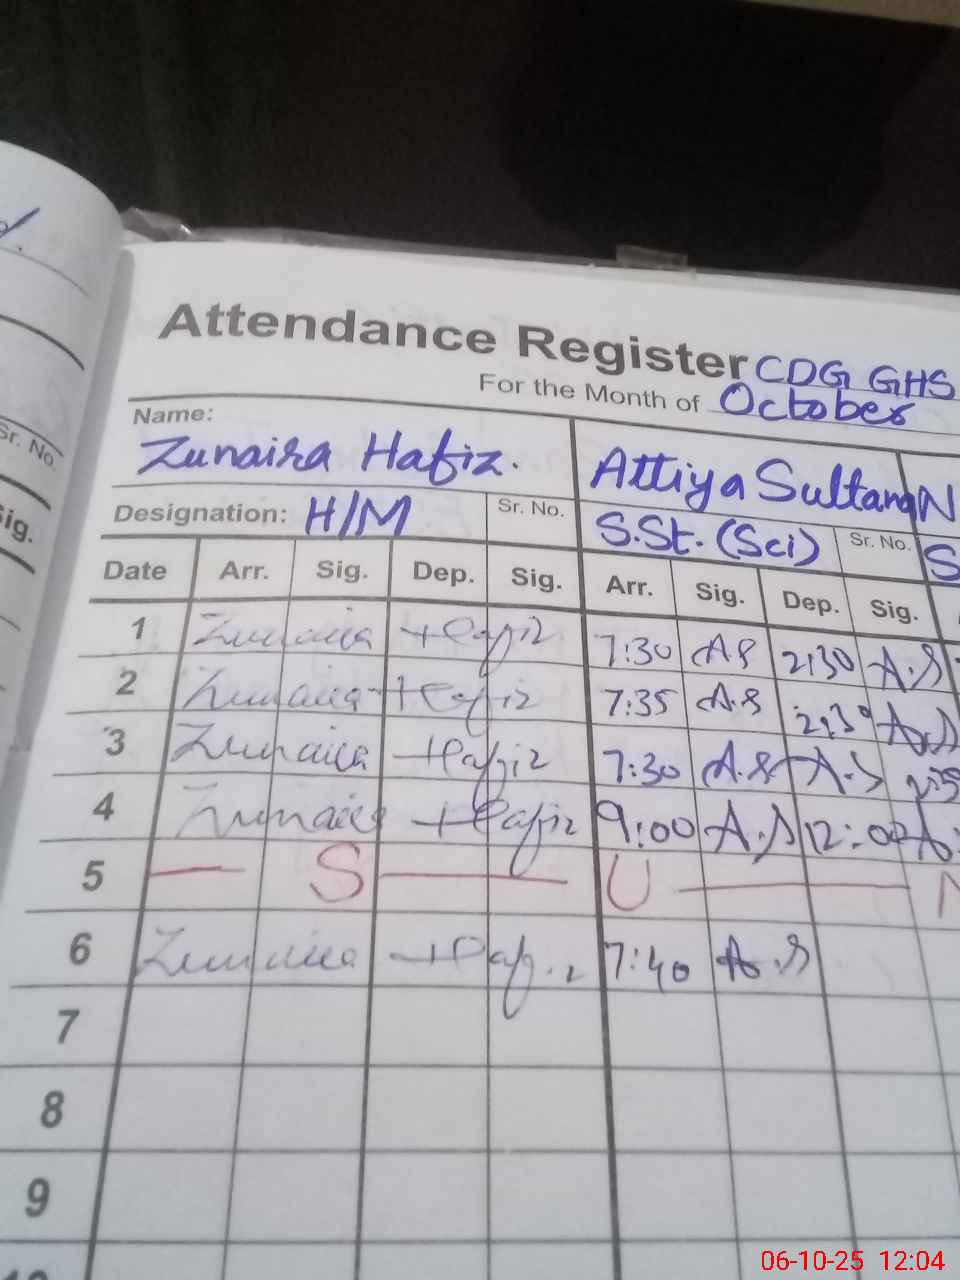 Attendance Register CDG GHS
For the Month of October
Name:
Zunaira Hafiz.
Attiya Sultana
N
Sr. No.
Designation: H/M
Sr. No.
S.St. (Sci)
Sr. No.
S
Sig.
Date Arr. Sig. Dep. Sig. Arr. Sig. Dep. Sig.
1 Zunaira Hafiz 7:30 A.S 2:30 A.S
2 Zunaira Hafiz 7:35 A.S 2:30 A.S
3 Zunaira Hafiz 7:30 A.S A.S
4 Zunaira Hafiz 9:00 A.S 12:00 A.
5 — S — U — N
6 Zunaira Hafiz 7:40 A.S
7
8
9
10
06-10-25 12:04